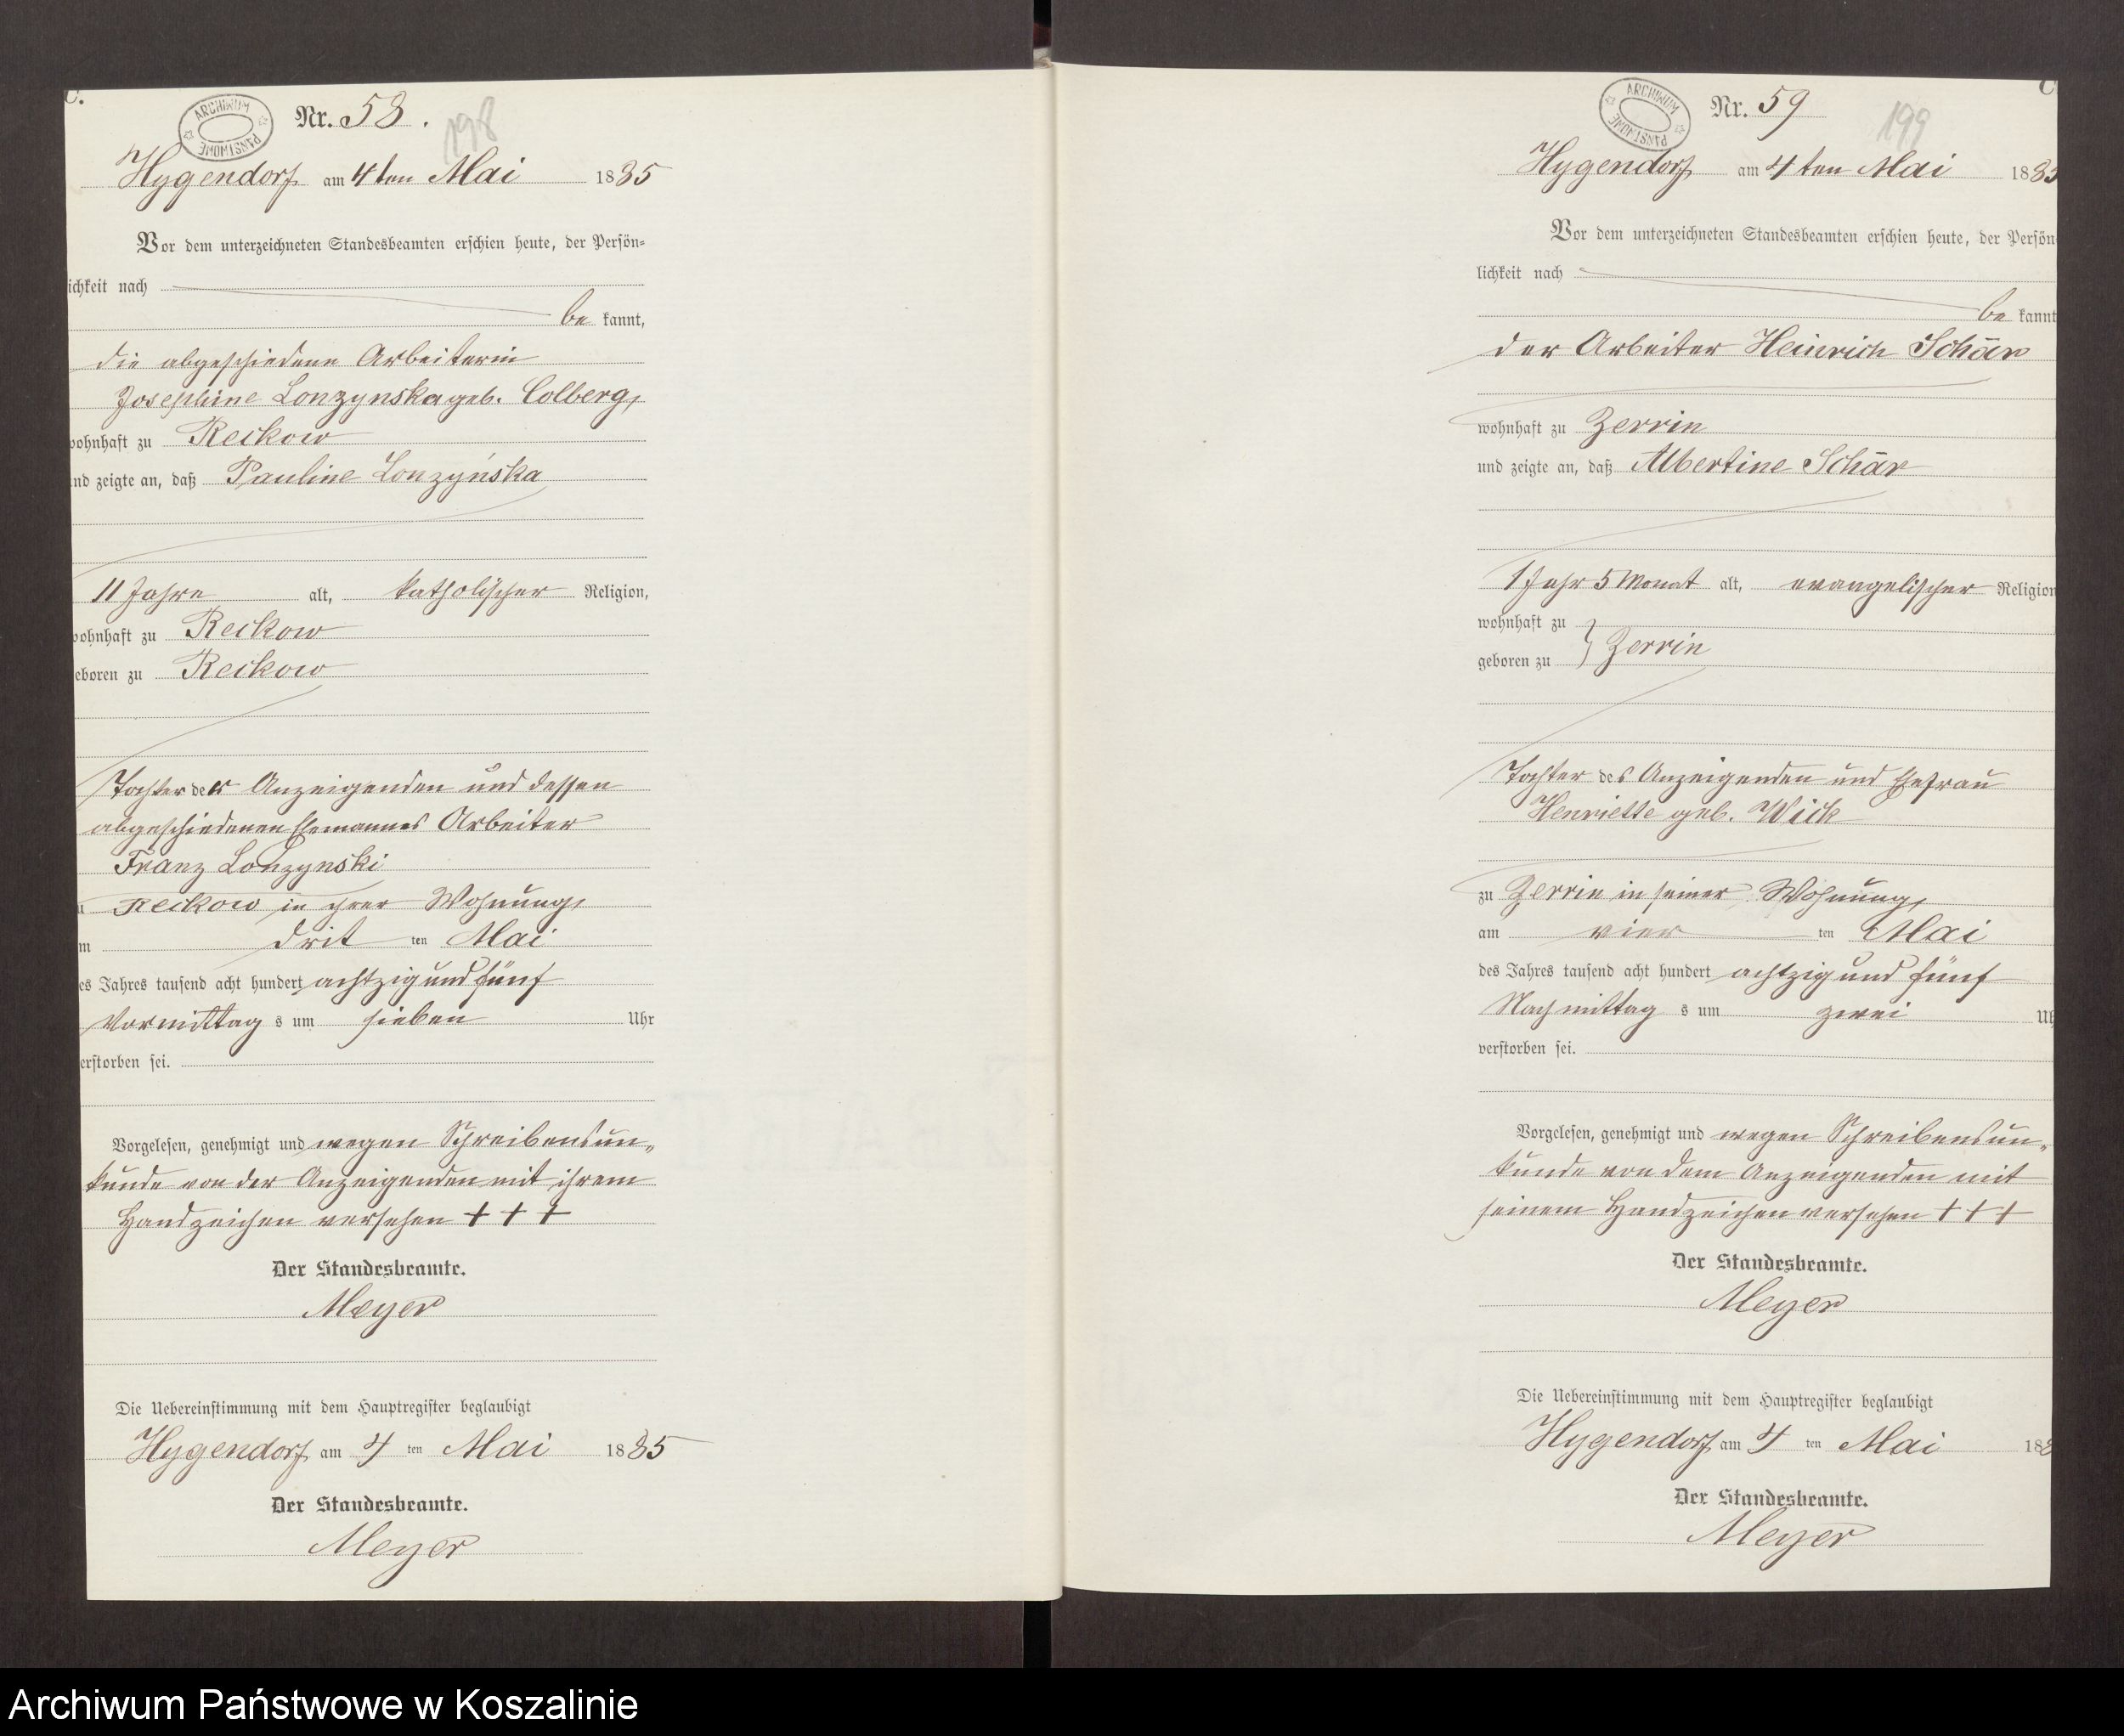 C.
ARCHIWUM PAŃSTWOWE
Nr. 58.
198
Hygendorf am 4ten Mai 1885
Vor dem unterzeichneten Standesbeamten erschien heute, der Persön-
lichkeit nach
be kannt,
die abgeschiedene Arbeiterin
Josephine Lonzynska geb. Colberg,
wohnhaft zu Reckow
und zeigte an, daß Pauline Lonzyńska
11 Jahre alt, katholischer Religion,
wohnhaft zu Reckow
geboren zu Reckow
Tochter der Anzeigenden und dessen
abgeschiedenen Ehemannes Arbeiter
Franz Lonzynski
zu Reckow in ihrer Wohnung,
am drit ten Mai
des Jahres tausend acht hundert achtzig und fünf
Vormittag s um sieben Uhr
verstorben sei.
Vorgelesen, genehmigt und wegen Schreibensun-
kunde von der Anzeigenden mit ihrem
Handzeichen versehen + + +
Der Standesbeamte.
Meyer
Die Uebereinstimmung mit dem Hauptregister beglaubigt
Hygendorf am 4 ten Mai 1885
Der Standesbeamte.
Meyer
C
ARCHIWUM PAŃSTWOWE
Nr. 59
199
Hygendorf am 4ten Mai 1885
Vor dem unterzeichneten Standesbeamten erschien heute, der Persön-
lichkeit nach
be kannt
der Arbeiter Heinrich Schär
wohnhaft zu Zerrin
und zeigte an, daß Albertine Schär
1 Jahr 5 Monat alt, evangelischer Religion
wohnhaft zu
geboren zu } Zerrin
Tochter des Anzeigenden und Ehefrau
Henriette geb. Wick
zu Zerrin in seiner Wohnung,
am vier ten Mai
des Jahres tausend acht hundert achtzig und fünf
Nachmittag s um zwei Uh
verstorben sei.
Vorgelesen, genehmigt und wegen Schreibensun-
kunde von dem Anzeigenden mit
seinem Handzeichen versehen + + +
Der Standesbeamte.
Meyer
Die Uebereinstimmung mit dem Hauptregister beglaubigt
Hygendorf am 4 ten Mai 188
Der Standesbeamte.
Meyer
Archiwum Państwowe w Koszalinie